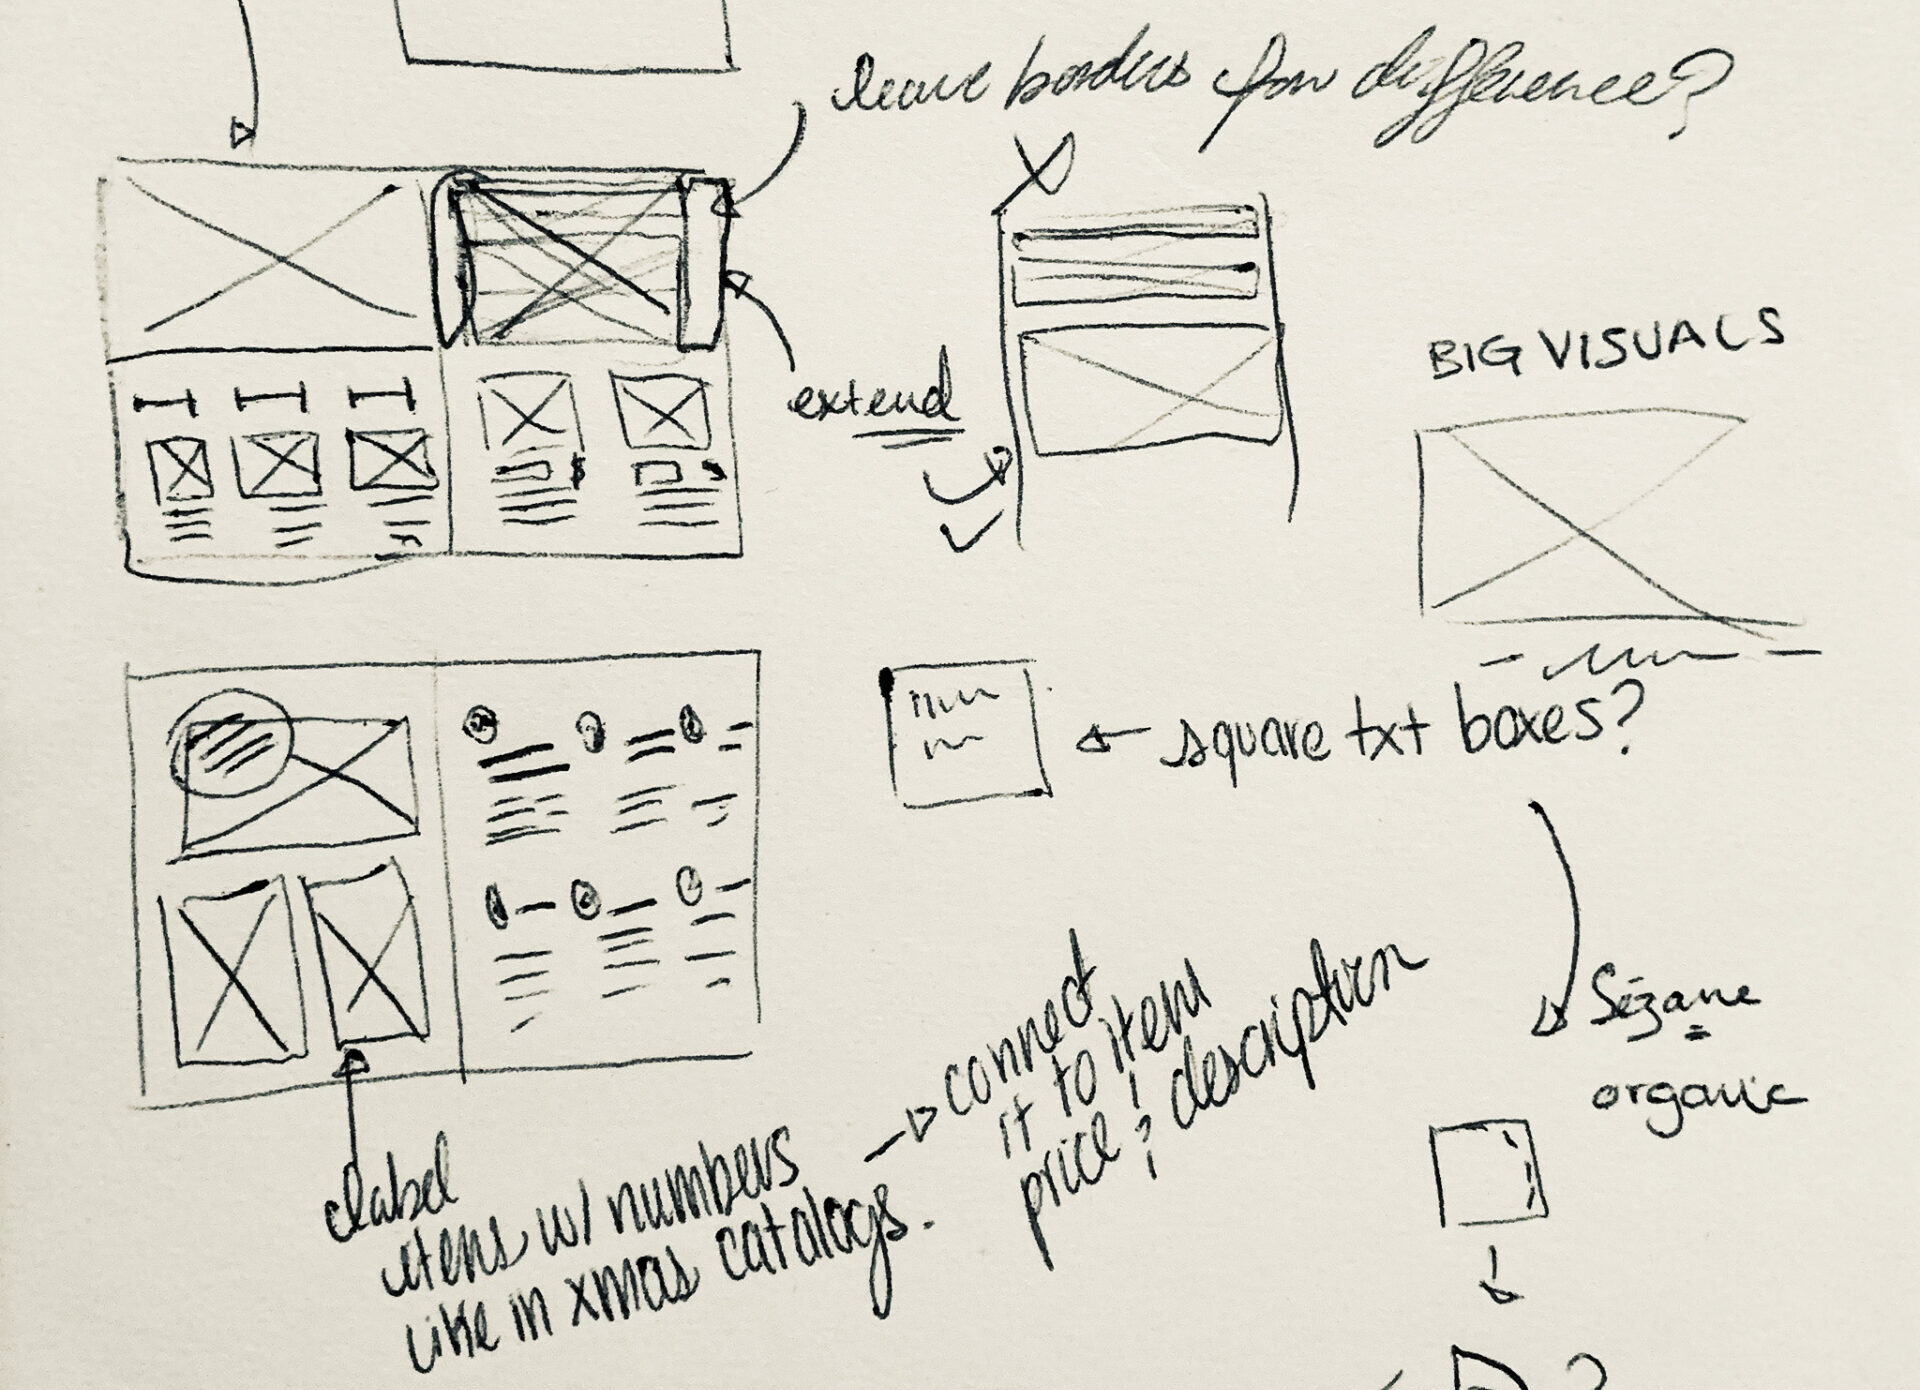 leave borders for difference?
extend
BIG VISUALS
$
square txt boxes?
Sézane
organic
connect
it to item
price & description
label
items w/ numbers
like in xmas catalogs.
?